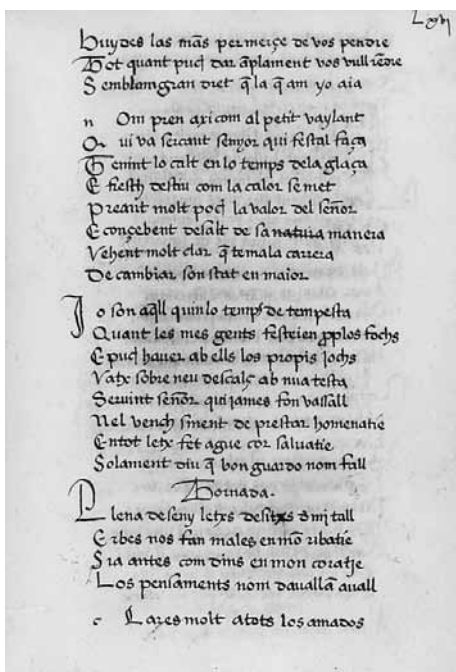 Lxvj
Huydes las mãs per merçe de vos pendre
Tot quant puch dar cõplament vos vull rẽdre
Semblam gran dret q̃ la q̃ am yo aia
n Om pren axi com al petit vaylant
Qui va sercant senyor qui festal faça
Tenint lo calt en lo temps dela glaça
E fresch destiu com la calor se met
Preant molt poch la valor del señor
E conçebent desalt de sa natura manera
Vehent molt clar q̃ te mala carrera
De cambiar son stat en maior
Jo son aq̃ll qui en lo temps de tempesta
Quant les mes gents festeien p̱plos fochs
E puch hauer ab ells los propis jochs
Vatx sobre neu descalç ab nua testa
Seruint señor qui james fon vassall
Nel vench sment de prestar homenatie
En tot letx fet ague cor saluatie
Solament diu q̃ bon guardo nom fall
Tornada.
Plena de seny letxs desitxs d mj tall
Erbes nos fan males en mõ ribatie
Sia antes com dins en mon coratie
Los pensaments nom dauallẽ auall
c Lares molt a tots los amados